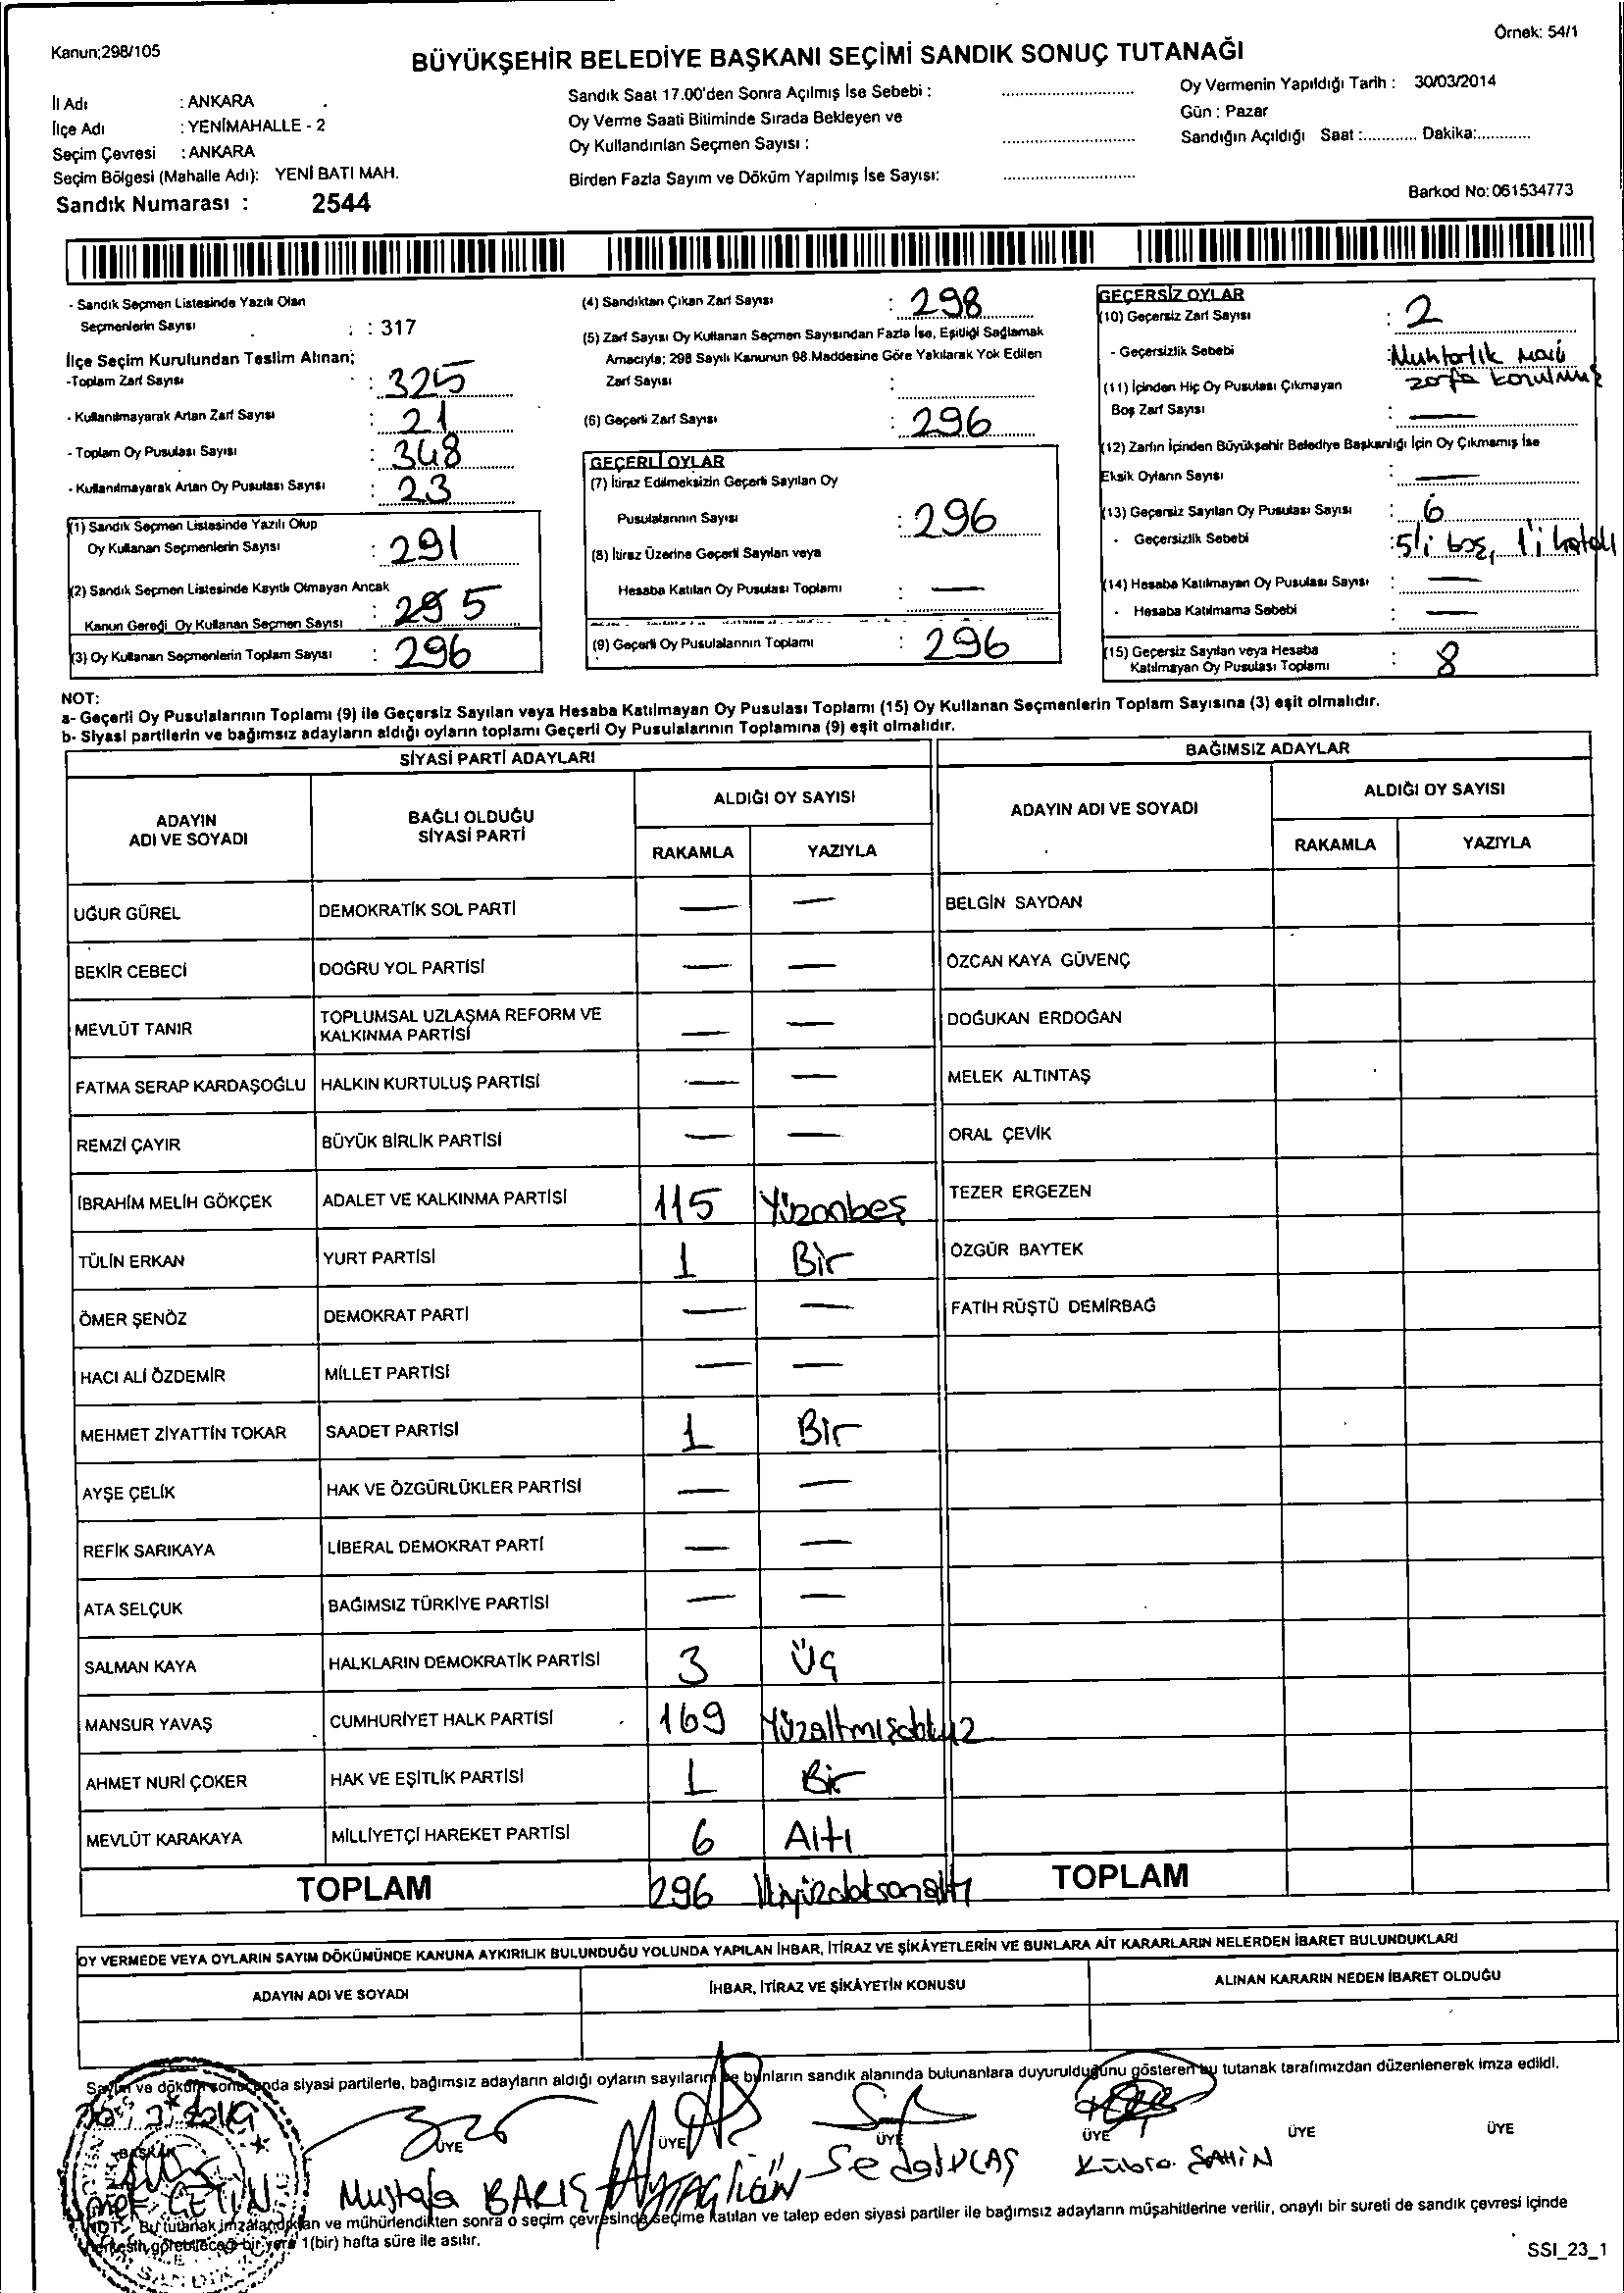 Kanun;298/105
Örnek: 54/1
BÜYÜKŞEHİR BELEDİYE BAŞKANI SEÇİMİ SANDIK SONUÇ TUTANAĞI
İl Adı : ANKARA
İlçe Adı : YENİMAHALLE - 2
Seçim Çevresi : ANKARA
Seçim Bölgesi (Mahalle Adı): YENİ BATI MAH.
Sandık Numarası : 2544
Sandık Saat 17.00'den Sonra Açılmış İse Sebebi :
Oy Verme Saati Bitiminde Sırada Bekleyen ve
Oy Kullandırılan Seçmen Sayısı :
Birden Fazla Sayım ve Döküm Yapılmış İse Sayısı:
Oy Vermenin Yapıldığı Tarih : 30/03/2014
Gün : Pazar
Sandığın Açıldığı Saat :............ Dakika:............
Barkod No: 061534773
- Sandık Seçmen Listesinde Yazılı Olan
Seçmenlerin Sayısı : 317
İlçe Seçim Kurulundan Teslim Alınan;
-Toplam Zarf Sayısı : 325
- Kullanılmayarak Artan Zarf Sayısı : 21
- Toplam Oy Pusulası Sayısı : 348
- Kullanılmayarak Artan Oy Pusulası Sayısı : 23
(1) Sandık Seçmen Listesinde Yazılı Olup
Oy Kullanan Seçmenlerin Sayısı : 291
(2) Sandık Seçmen Listesinde Kayıtlı Olmayan Ancak
Kanun Gereği Oy Kullanan Seçmen Sayısı : 5
(3) Oy Kullanan Seçmenlerin Toplam Sayısı : 296
(4) Sandıktan Çıkan Zarf Sayısı : 298
(5) Zarf Sayısı Oy Kullanan Seçmen Sayısından Fazla İse, Eşitliği Sağlamak
Amacıyla; 298 Sayılı Kanunun 98.Maddesine Göre Yakılarak Yok Edilen
Zarf Sayısı :
(6) Geçerli Zarf Sayısı : 296
GEÇERLİ OYLAR
(7) İtiraz Edilmeksizin Geçerli Sayılan Oy
Pusulalarının Sayısı : 296
(8) İtiraz Üzerine Geçerli Sayılan veya
Hesaba Katılan Oy Pusulası Toplamı : —
(9) Geçerli Oy Pusulalarının Toplamı : 296
GEÇERSİZ OYLAR
(10) Geçersiz Zarf Sayısı : 2
- Geçersizlik Sebebi : Muhtarlık mavi
zarfa konulmuş
(11) İçinden Hiç Oy Pusulası Çıkmayan
Boş Zarf Sayısı : —
(12) Zarfın İçinden Büyükşehir Belediye Başkanlığı İçin Oy Çıkmamış İse
Eksik Oyların Sayısı : —
(13) Geçersiz Sayılan Oy Pusulası Sayısı : 6
- Geçersizlik Sebebi : 5'i boş, 1'i hatalı
(14) Hesaba Katılmayan Oy Pusulası Sayısı : —
- Hesaba Katılmama Sebebi : —
(15) Geçersiz Sayılan veya Hesaba
Katılmayan Oy Pusulası Toplamı : 8
NOT:
a- Geçerli Oy Pusulalarının Toplamı (9) ile Geçersiz Sayılan veya Hesaba Katılmayan Oy Pusulası Toplamı (15) Oy Kullanan Seçmenlerin Toplam Sayısına (3) eşit olmalıdır.
b- Siyasi partilerin ve bağımsız adayların aldığı oyların toplamı Geçerli Oy Pusulalarının Toplamına (9) eşit olmalıdır.
SİYASİ PARTİ ADAYLARI
ADAYIN
ADI VE SOYADI
BAĞLI OLDUĞU
SİYASİ PARTİ
ALDIĞI OY SAYISI
RAKAMLA YAZIYLA
UĞUR GÜREL DEMOKRATİK SOL PARTİ — —
BEKİR CEBECİ DOĞRU YOL PARTİSİ — —
MEVLÜT TANIR TOPLUMSAL UZLAŞMA REFORM VE
KALKINMA PARTİSİ — —
FATMA SERAP KARDAŞOĞLU HALKIN KURTULUŞ PARTİSİ — —
REMZİ ÇAYIR BÜYÜK BİRLİK PARTİSİ — —
İBRAHİM MELİH GÖKÇEK ADALET VE KALKINMA PARTİSİ 115 Yüzonbeş
TÜLİN ERKAN YURT PARTİSİ 1 Bir
ÖMER ŞENÖZ DEMOKRAT PARTİ — —
HACI ALİ ÖZDEMİR MİLLET PARTİSİ — —
MEHMET ZİYATTİN TOKAR SAADET PARTİSİ 1 Bir
AYŞE ÇELİK HAK VE ÖZGÜRLÜKLER PARTİSİ — —
REFİK SARIKAYA LİBERAL DEMOKRAT PARTİ — —
ATA SELÇUK BAĞIMSIZ TÜRKİYE PARTİSİ — —
SALMAN KAYA HALKLARIN DEMOKRATİK PARTİSİ 3 Üç
MANSUR YAVAŞ CUMHURİYET HALK PARTİSİ 169
AHMET NURİ ÇOKER HAK VE EŞİTLİK PARTİSİ 1 Bir
MEVLÜT KARAKAYA MİLLİYETÇİ HAREKET PARTİSİ 6 Altı
TOPLAM 296
BAĞIMSIZ ADAYLAR
ADAYIN ADI VE SOYADI
ALDIĞI OY SAYISI
RAKAMLA YAZIYLA
BELGİN SAYDAN
ÖZCAN KAYA GÜVENÇ
DOĞUKAN ERDOĞAN
MELEK ALTINTAŞ
ORAL ÇEVİK
TEZER ERGEZEN
ÖZGÜR BAYTEK
FATİH RÜŞTÜ DEMİRBAĞ
TOPLAM
OY VERMEDE VEYA OYLARIN SAYIM DÖKÜMÜNDE KANUNA AYKIRILIK BULUNDUĞU YOLUNDA YAPILAN İHBAR, İTİRAZ VE ŞİKÂYETLERİN VE BUNLARA AİT KARARLARIN NELERDEN İBARET BULUNDUKLARI
ADAYIN ADI VE SOYADI
İHBAR, İTİRAZ VE ŞİKÂYETİN KONUSU
ALINAN KARARIN NEDEN İBARET OLDUĞU
Sayım ve döküm sonucunda siyasi partilerle, bağımsız adayların aldığı oyların sayılarını ve bunların sandık alanında bulunanlara duyurulduğunu gösteren bu tutanak tarafımızdan düzenlenerek imza edildi.
BAŞKAN ÜYE ÜYE ÜYE ÜYE ÜYE ÜYE
ÇETİN Mustafa BARIŞ Sedat UÇAŞ Kübra ŞAHİN
NOT: Bu tutanak imzalandıktan ve mühürlendikten sonra o seçim çevresinde seçime katılan ve talep eden siyasi partiler ile bağımsız adayların müşahitlerine verilir, onaylı bir sureti de sandık çevresi içinde
herkesin görebileceği bir yere 1(bir) hafta süre ile asılır.
SSI_23_1